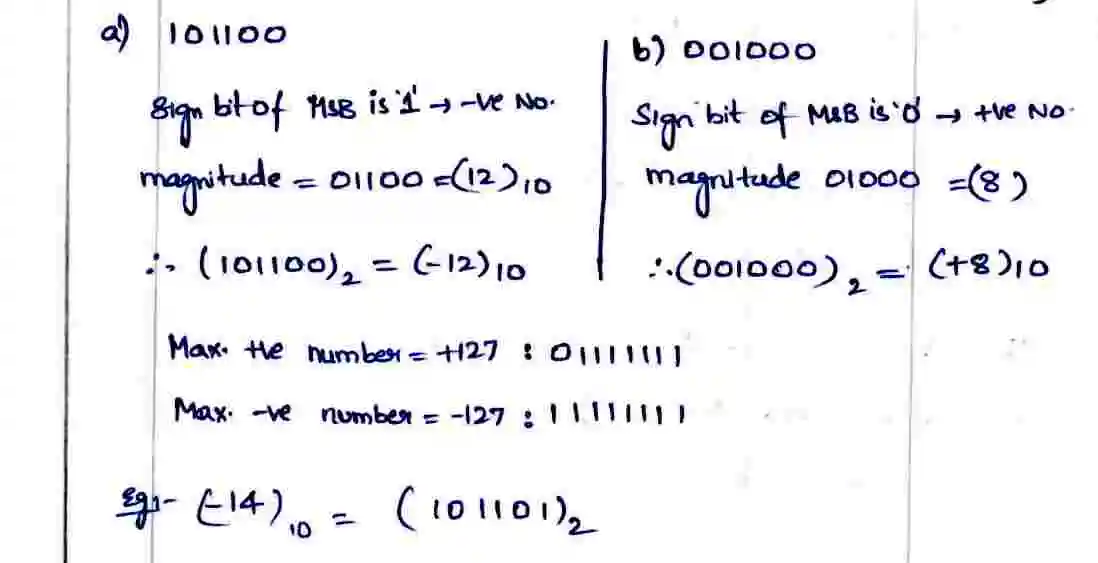 a) 101100
Sign bit of MSB is '1' → -ve No.
magnitude = 01100 = (12)10
∴ (101100)2 = (-12)10
b) 001000
Sign bit of MSB is '0' → +ve No.
magnitude 01000 = (8)
∴ (001000)2 = (+8)10
Max. +ve number = +127 : 01111111
Max. -ve number = -127 : 11111111
Eg:- (-14)10 = (101101)2